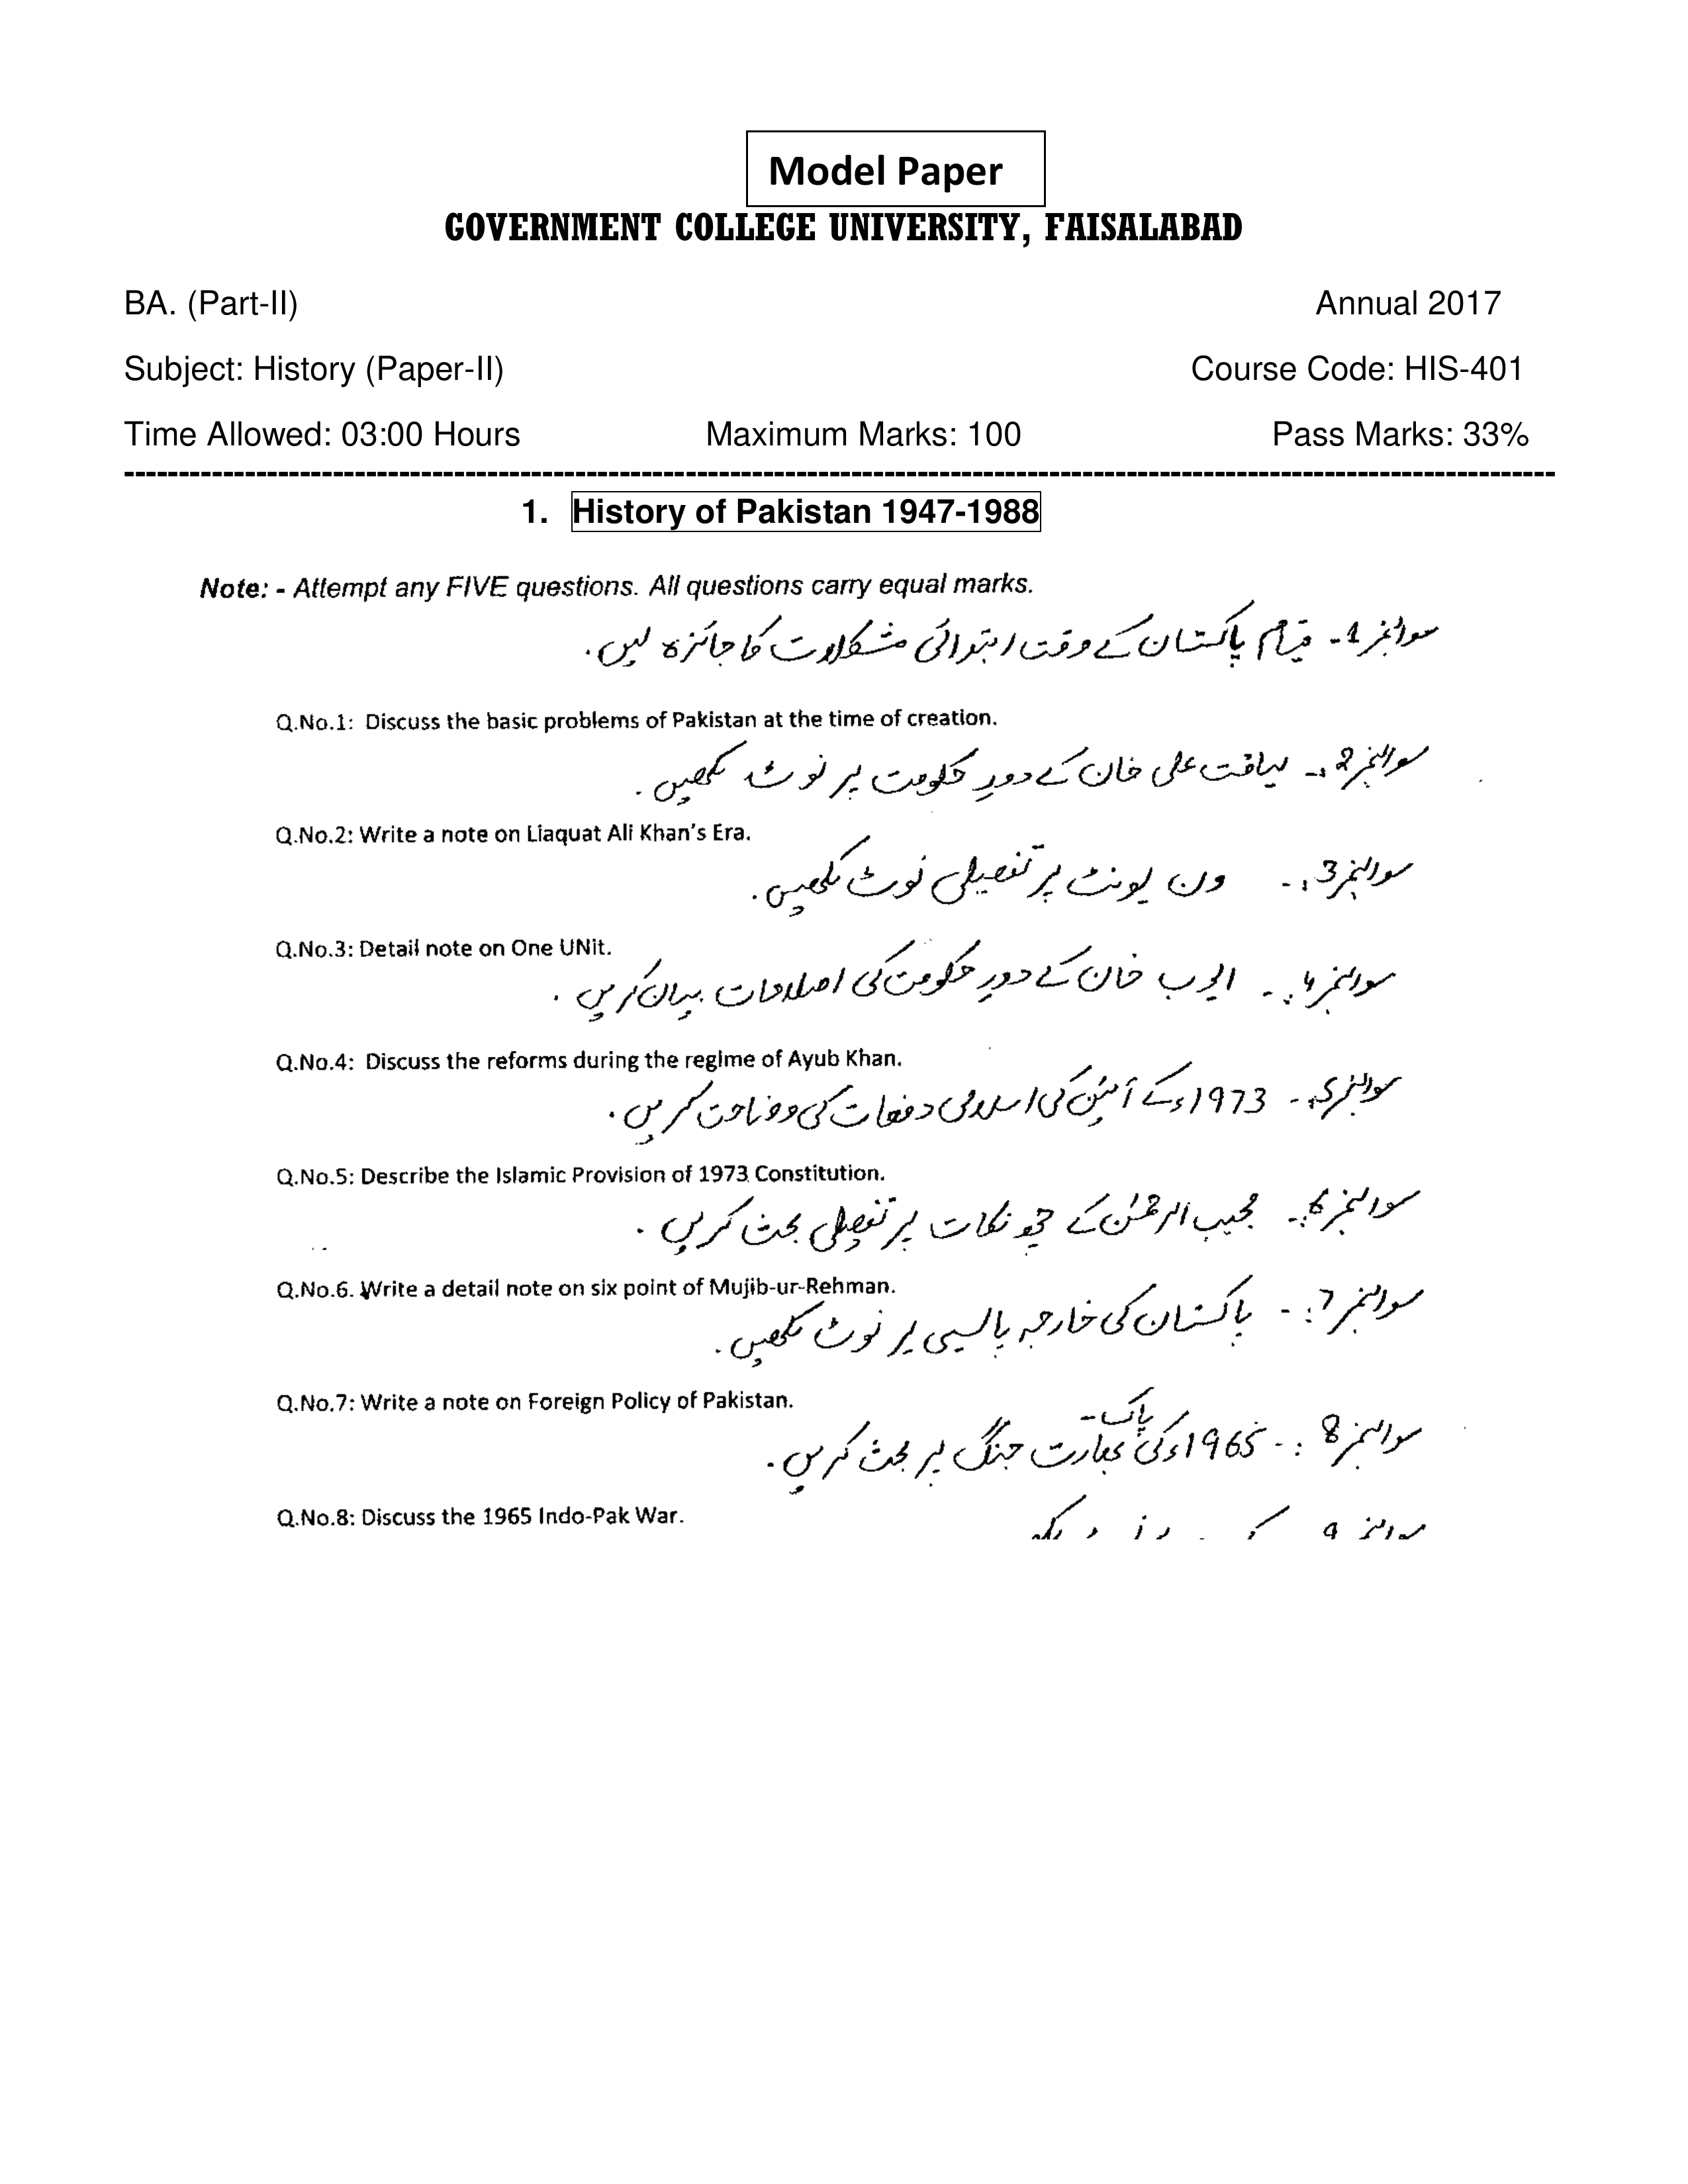 Model Paper
GOVERNMENT COLLEGE UNIVERSITY, FAISALABAD
BA. (Part-II) Annual 2017
Subject: History (Paper-II) Course Code: HIS-401
Time Allowed: 03:00 Hours Maximum Marks: 100 Pass Marks: 33%
1. History of Pakistan 1947-1988
Note: - Attempt any FIVE questions. All questions carry equal marks.
سوالنمبر 1- قیام پاکستان کے وقت ابتدائی مشکلات کا جائزہ لیں۔
Q.No.1: Discuss the basic problems of Pakistan at the time of creation.
سوالنمبر 2:- لیاقت علی خان کے دورِ حکومت پر نوٹ لکھیں۔
Q.No.2: Write a note on Liaquat Ali Khan's Era.
سوالنمبر 3:- ون یونٹ پر تفصیلی نوٹ لکھیں۔
Q.No.3: Detail note on One UNit.
سوالنمبر 4:- ایوب خان کے دورِ حکومت کی اصلاحات بیان کریں۔
Q.No.4: Discuss the reforms during the regime of Ayub Khan.
سوالنمبر 5:- 1973ء کے آئین کی اسلامی دفعات کی وضاحت کریں۔
Q.No.5: Describe the Islamic Provision of 1973 Constitution.
سوالنمبر 6:- مجیب الرحمٰن کے چھ نکات پر تفصیلی بحث کریں۔
Q.No.6. Write a detail note on six point of Mujib-ur-Rehman.
سوالنمبر 7:- پاکستان کی خارجہ پالیسی پر نوٹ لکھیں۔
Q.No.7: Write a note on Foreign Policy of Pakistan.
سوالنمبر 8:- 1965ء کی پاک- بھارت جنگ پر بحث کریں۔
Q.No.8: Discuss the 1965 Indo-Pak War.